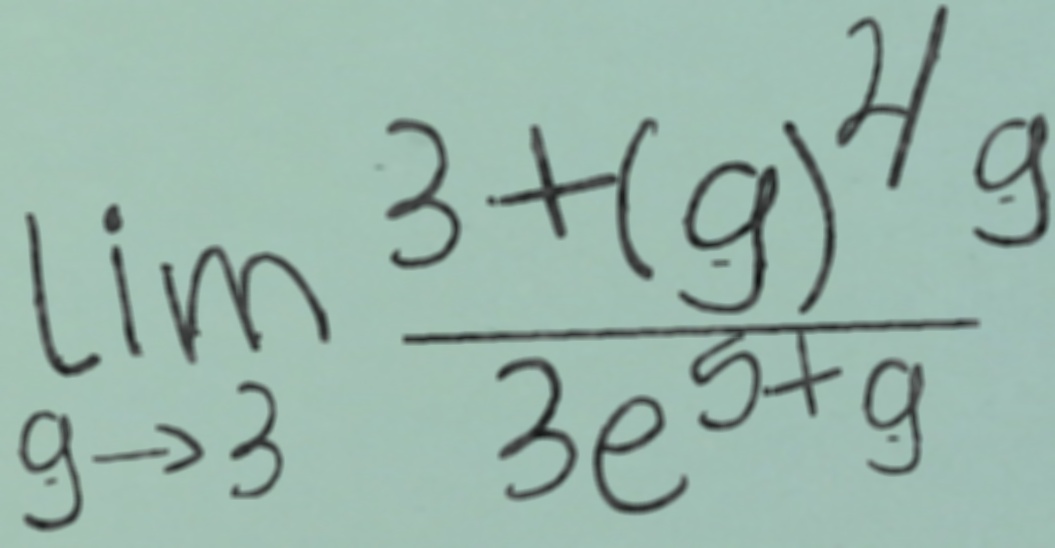 \lim_{g \to 3} \frac{3+(g)^{4}g}{3e^{5+g}}